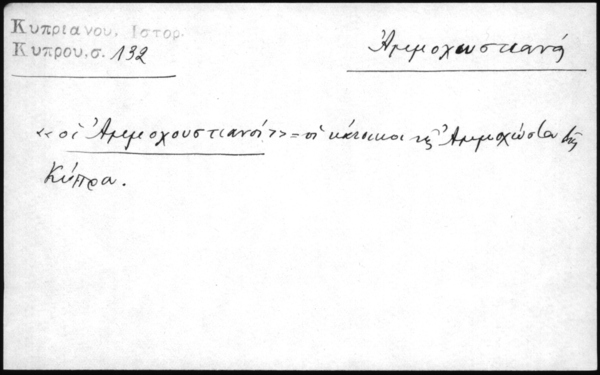 Κυπριανου, Ιστορ.
Κυπρου,σ. 132
Ἀμμοχουστιανό
«οἱ Ἀμμοχουστιανοί» = οἱ κάτοικοι τῆς Ἀμμοχώστου τῆς
Κύπρου.